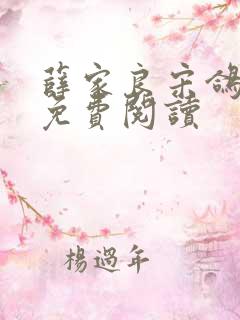 薛家良宋鴿
免費閱讀
楊過年